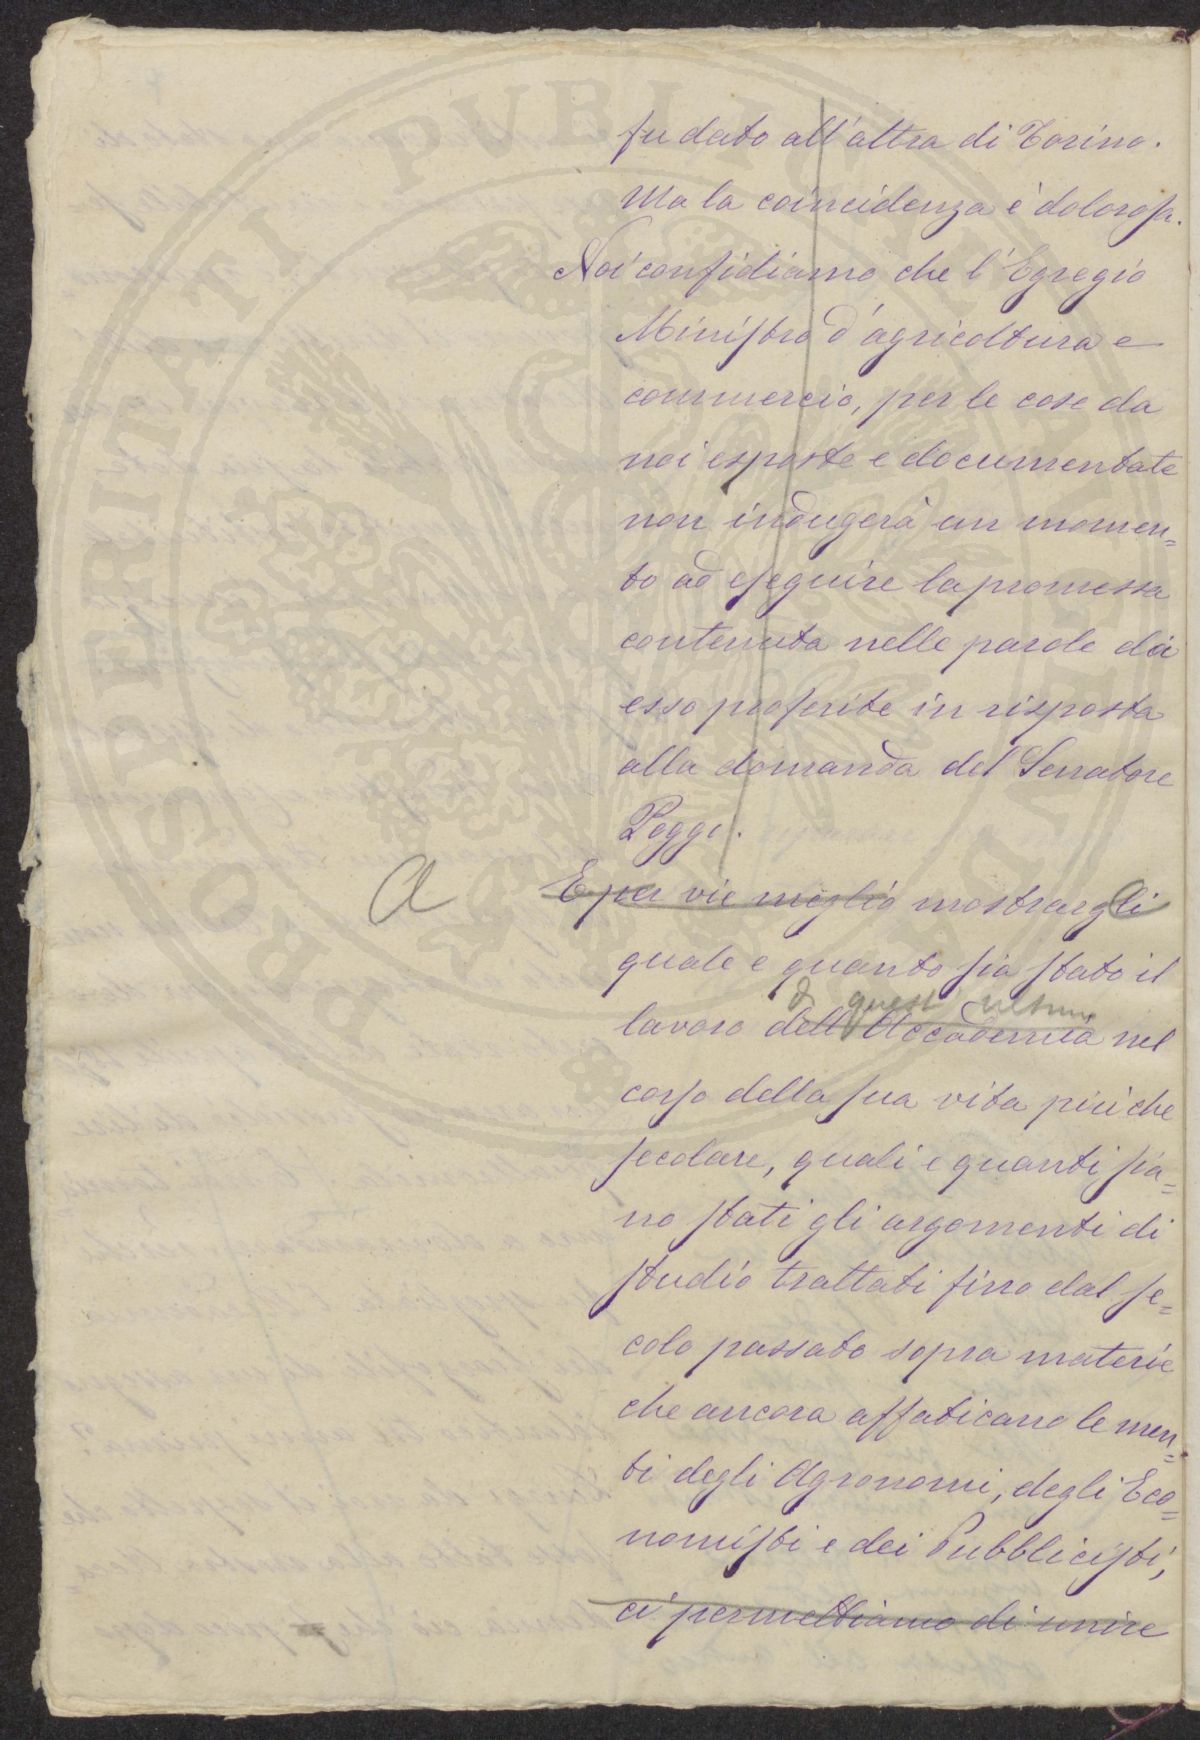 fu dato all'altra di Torino.
Ma la coincidenza è dolorosa.
Noi confidiamo che l'Egregio
Ministro d'agricoltura e
commercio, per le cose da
noi esposte e documentate
non indugerà un momen=
to ad eseguire la promessa
contenuta nelle parole da
esso proferite in risposta
alla domanda del Senatore
Poggi.
a E per vie meglio mostrargli
quale e quanto sia stato il
di quest' ultima
lavoro dell'Accademia nel
corso della sua vita più che
secolare, quali e quanti sia=
no stati gli argomenti di
studio trattati fino dal se=
colo passato sopra materie
che ancora affaticano le men=
ti degli Agronomi, degli Eco=
nomisti e dei Pubblicisti,
ci permettiamo di unire
PROSPERITATI PUBLICAE AUGENDAE